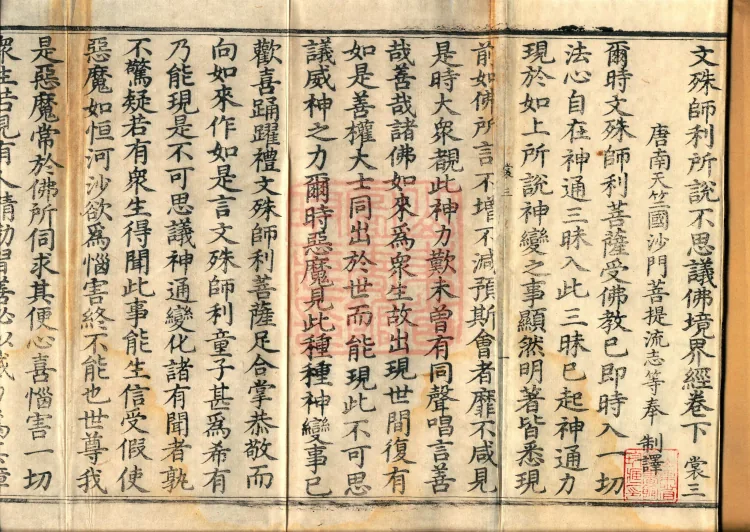 文殊師利所說不思議佛境界經卷下 裳三
唐南天竺國沙門菩提流志等奉 制譯
爾時文殊師利菩薩受佛教已即時入一切
法心自在神通三昧入此三昧已起神通力
現於如上所說神變之事顯然明著皆悉現
前如佛所言不增不減預斯會者靡不咸見
是時大衆覩此神力歎未曾有同聲唱言善
哉善哉諸佛如來爲衆生故出現世間復有
如是善權大士同出於世而能現此不可思
議威神之力爾時惡魔見此種種神變事已
歡喜踊躍禮文殊師利菩薩足合掌恭敬而
向如來作如是言文殊師利童子甚爲希有
乃能現是不可思議神通變化諸有聞者孰
不驚疑若有衆生得聞此事能生信受假使
惡魔如恒河沙欲爲惱害終不能也世尊我
是惡魔常於佛所伺求其便心喜惱害一切
衆生若見有人精勤習善必以威力爲其